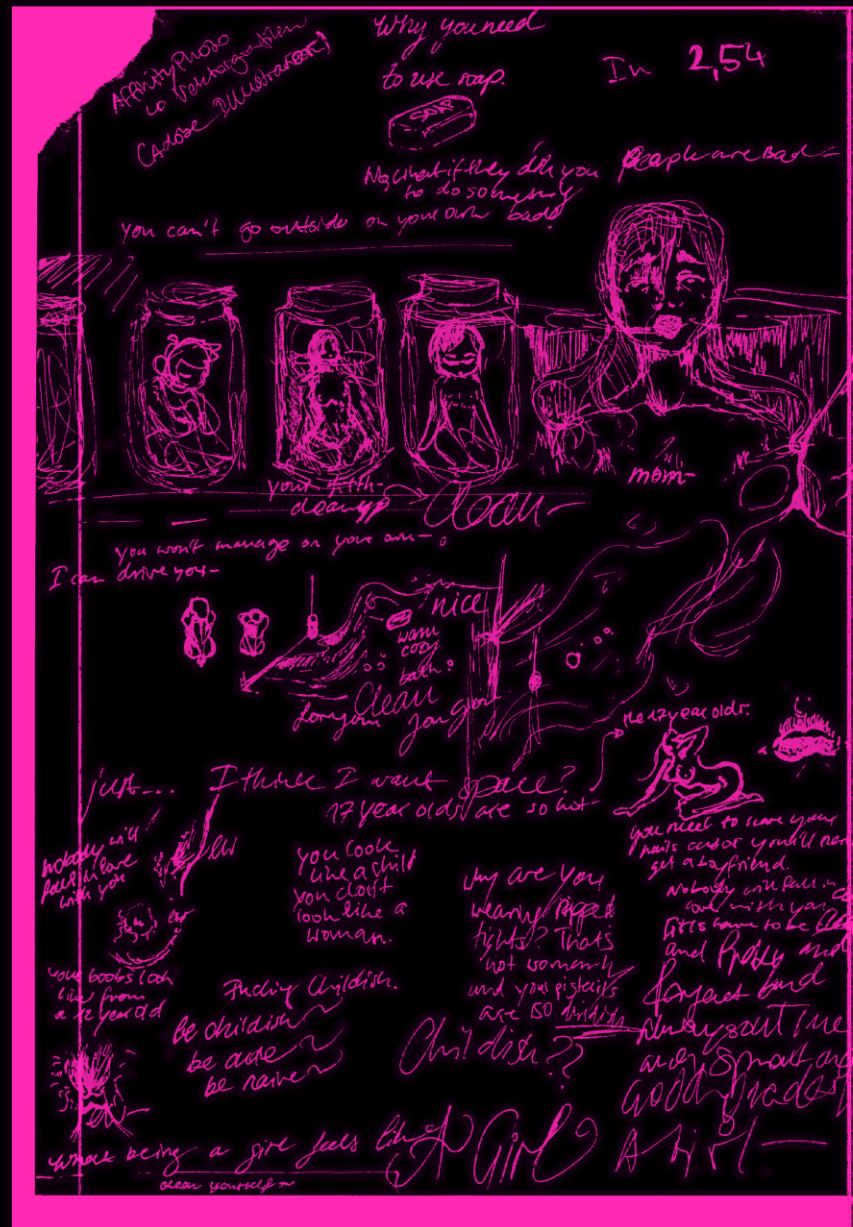 Affinity Photo
(Adobe Illustrator)
Why you need
to use soap.
SOAP
In 2,54
No, what if they ask you
to do something
bad?
People are Bad-
You can't go outside on your own
mom-
your filth-
clean up
Clean-
You won't manage on your own-.
I can drive you-
nice
warm
cozy
bath.
Clean
for you
just... I think I want space?
17 year olds are so hot
the 12 year olds.
nobody will
fall in love
with you
You look
like a child
you don't
look like a
woman.
why are you
wearing ripped
tights? That's
not womanly
and your pigtails
are so childish
you need to
nails
get a boyfriend.
Nobody will fall in
love with you
Girls have to be
and Pretty and
and
and Smart and
Good grades
your boobs look
like from
a 12 year old
Fucking Childish.
Be childish~
be cute~
be naive~
Childish??
where being a girl feels like
A Girl
A girl-
clean yourself~